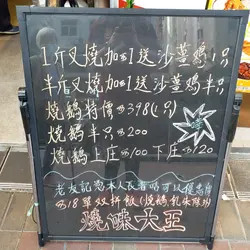 1斤叉燒加$1送沙薑鷄1只
半斤叉燒加$1送沙薑鷄半只
燒鵝特價$398(1只)
燒鵝半只$200
燒鵝上庄$100 下庄$120
老友記憑本人長者咭可以優惠價
$18單双拼飯(燒鵝,乳豬除外)
燒味大王